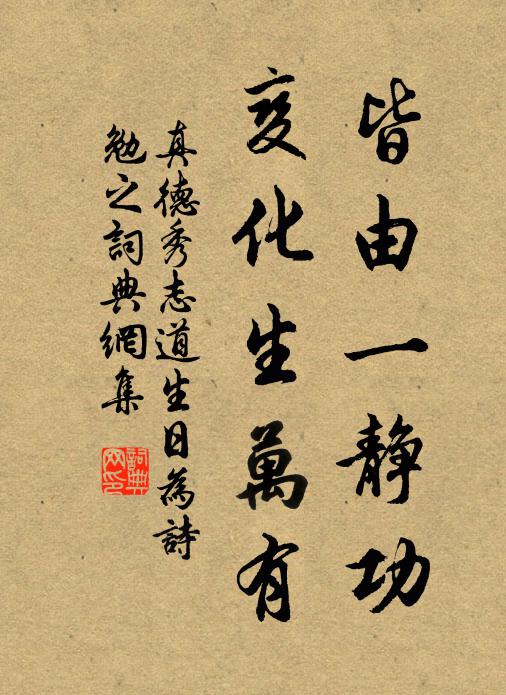 皆由一靜功
变化生萬有
真德秀志道生日為詩
勉之詞典網集
詞典
网印